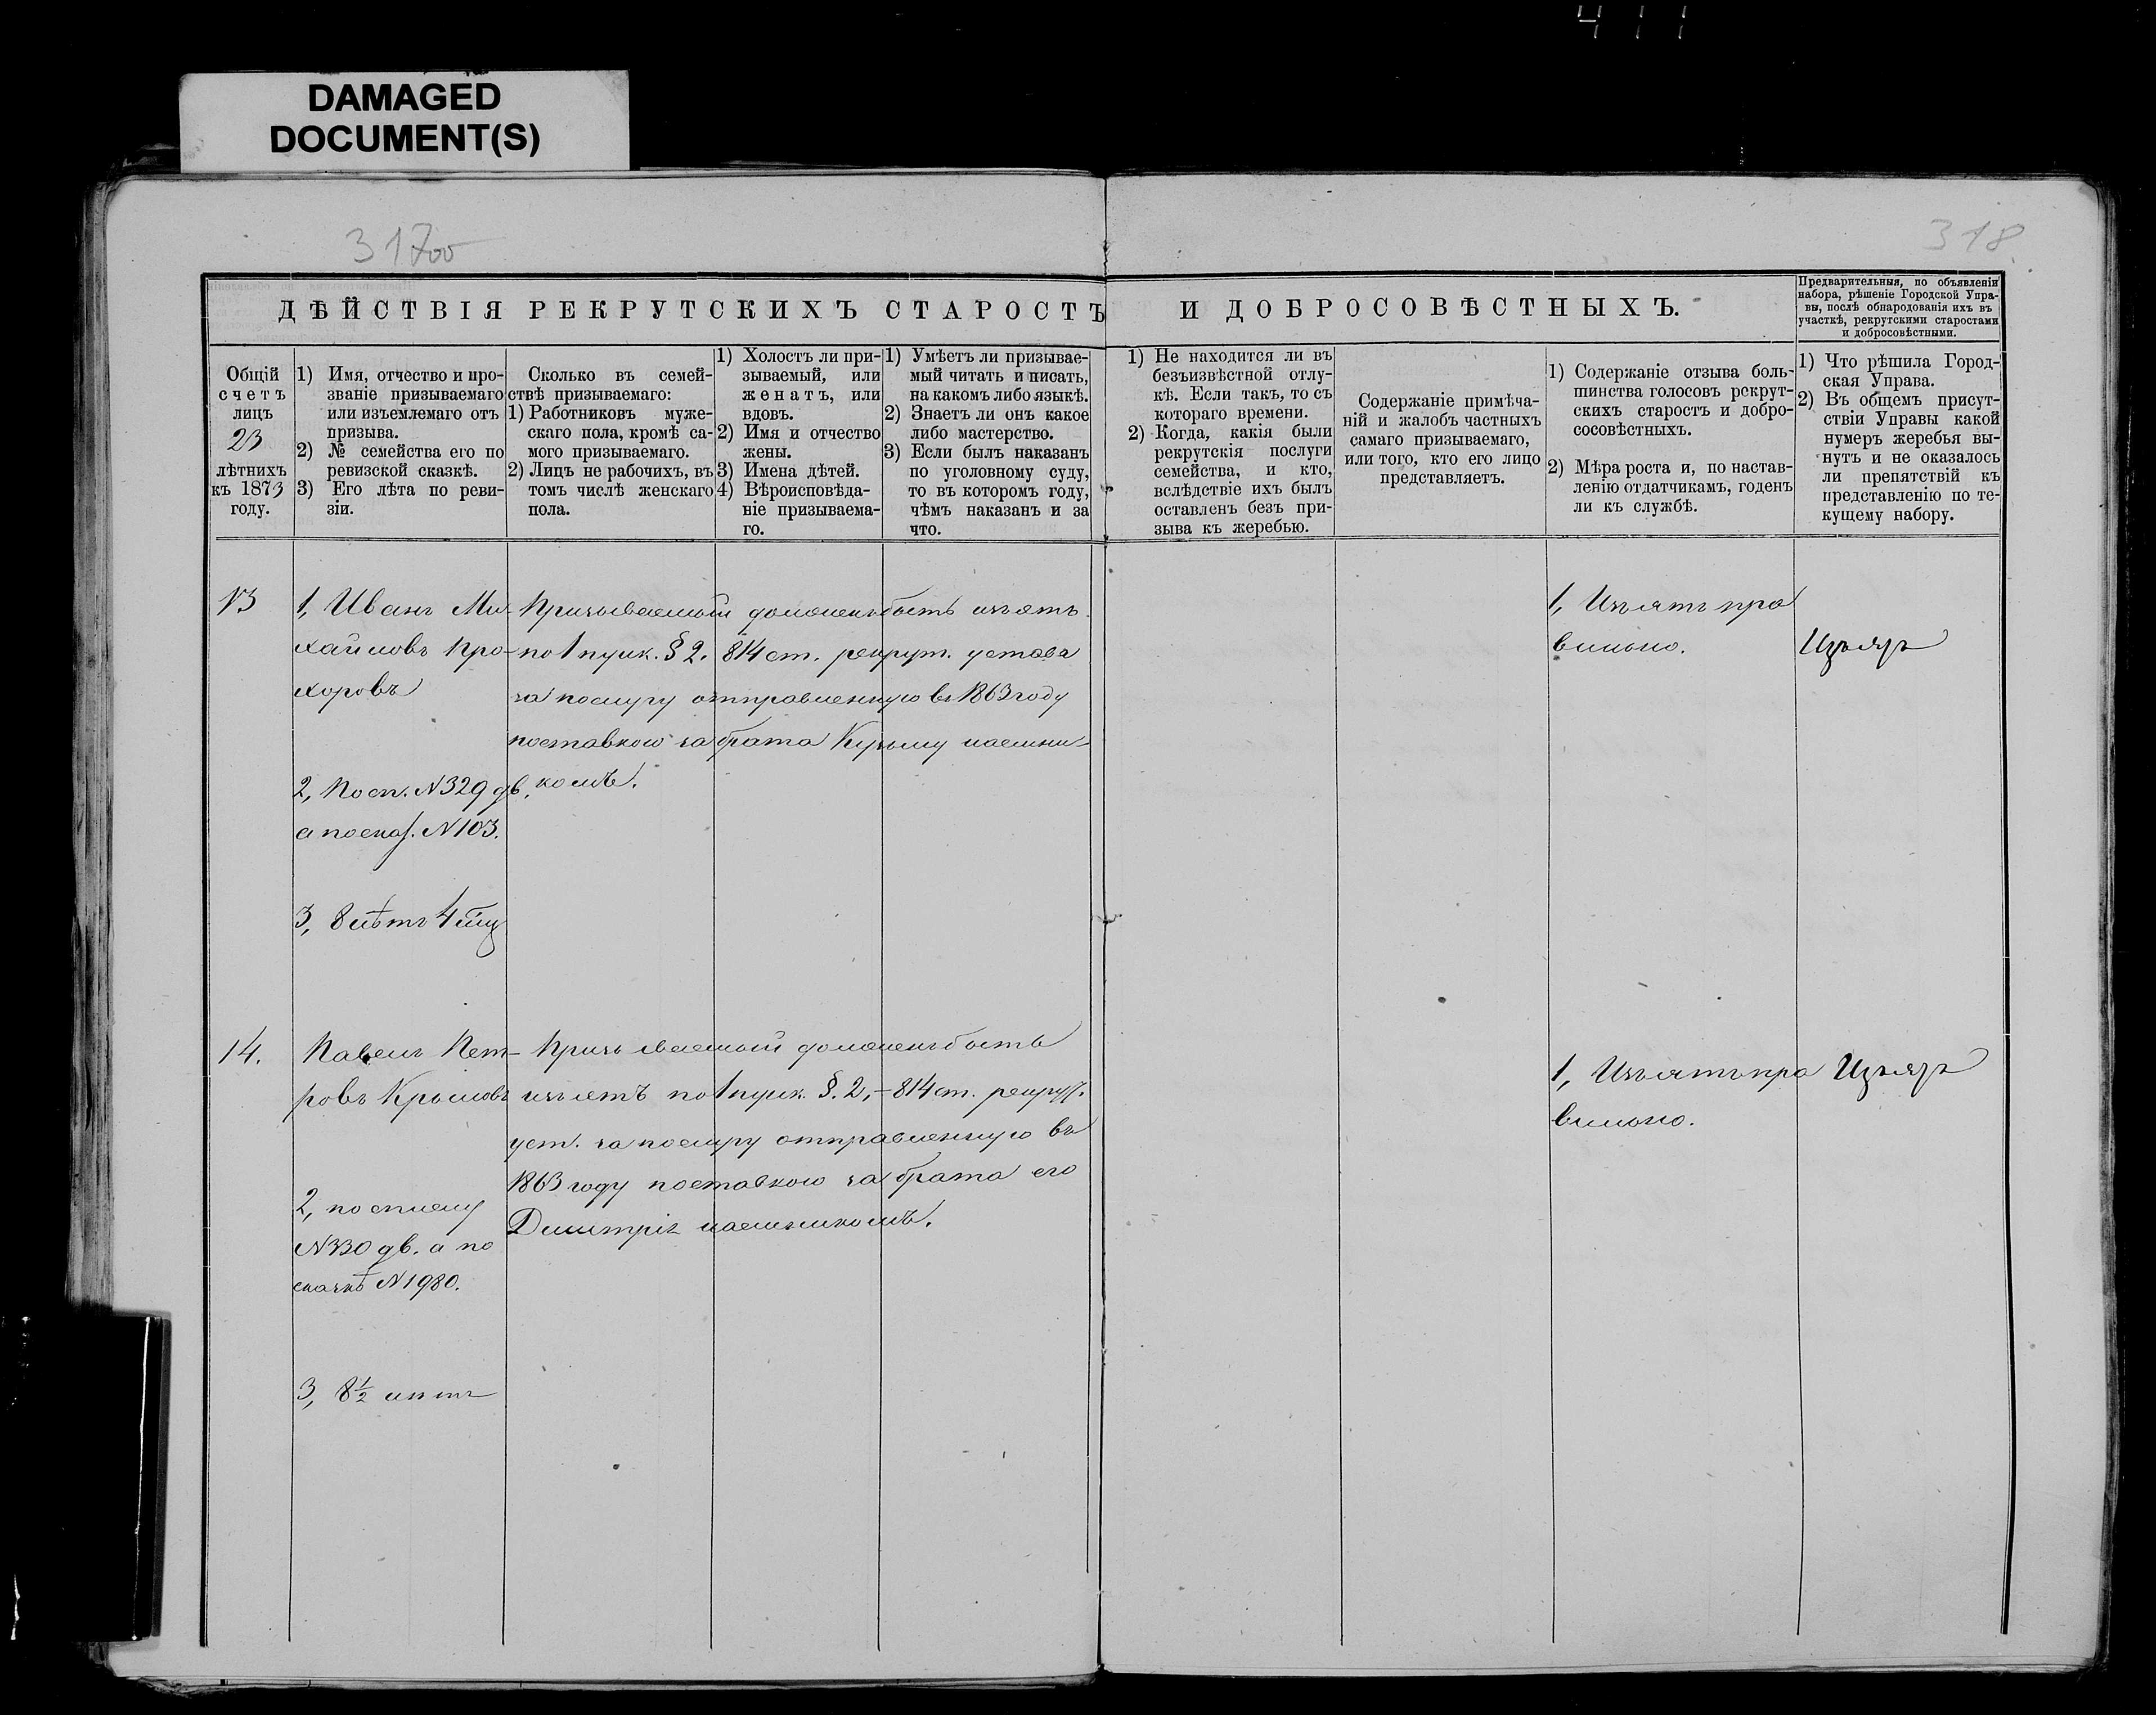 411
DAMAGED
DOCUMENT(S)
317об
318
ДѢЙСТВІЯ РЕКРУТСКИХЪ СТАРОСТЪ И ДОБРОСОВѢСТНЫХЪ.
Предварительныя, по объявленіи
набора, рѣшеніе Городской Упра-
вы, послѣ обнародованія ихъ въ
участкѣ, рекрутскими старостами
и добросовѣстными.
Общій
счетъ
лицъ
23
лѣтнихъ
къ 1873
году.
1) Имя, отчество и про-
званіе призываемаго
или изъемлемаго отъ
призыва.
2) № семейства его по
ревизской сказкѣ.
3) Его лѣта по реви-
зіи.
Сколько въ семей-
ствѣ призываемаго:
1) Работниковъ муже-
скаго пола, кромѣ са-
мого призываемаго.
2) Лицъ не рабочихъ, въ
томъ числѣ женскаго
пола.
1) Холостъ ли при-
зываемый, или
женатъ, или
вдовъ.
2) Имя и отчество
жены.
3) Имена дѣтей.
4) Вѣроисповѣда-
ніе призываема-
го.
1) Умѣетъ ли призывае-
мый читать и писать,
на какомъ либо языкѣ.
2) Знаетъ ли онъ какое
либо мастерство.
3) Если былъ наказанъ
по уголовному суду,
то въ которомъ году,
чѣмъ наказанъ и за
что.
1) Не находится ли въ
безъизвѣстной отлу-
кѣ. Если такъ, то съ
котораго времени.
2) Когда, какія были
рекрутскія послуги
семейства, и кто,
вслѣдствіе ихъ былъ
оставленъ безъ при-
зыва къ жеребью.
Содержаніе примѣча-
ній и жалобъ частныхъ
самаго призываемаго,
или того, кто его лицо
представляетъ.
1) Содержаніе отзыва боль-
шинства голосовъ рекрут-
скихъ старостъ и добро-
сосовѣстныхъ.
2) Мѣра роста и, по настав-
ленію отдатчикамъ, годенъ
ли къ службѣ.
1) Что рѣшила Город-
ская Управа.
2) Въ общемъ присут-
ствіи Управы какой
нумеръ жеребья вы-
нутъ и не оказалось
ли препятствій къ
представленію по те-
кущему набору.
13
1, Иванъ Ми-
хайловъ Про-
хоровъ
2, По сп. N 329 дв.
а по сказ. N 103.
3, 8 лѣтъ 4 мц
Призываемый долженъ быть изъятъ
по 1 пунк. § 2. 814 ст. рекрут. устава
за послугу отправленную въ 1863 году
поставкою за брата Кузьму наемни-
комъ.
1, Изъятъ пра
вильно.
Изъятъ
14.
Павелъ Пет-
ровъ Крыловъ
2, по списку
N 330 дв. а по
сказкѣ N 1980.
3, 8½ лѣтъ
Призываемый долженъ быть
изъятъ по 1 пунк. §. 2, - 814 ст. рекрут.
уст. за послугу отправленную въ
1863 году поставкою за брата его
Дмитрія наемникомъ.
1, Изъятъ пра
вильно.
Изъятъ